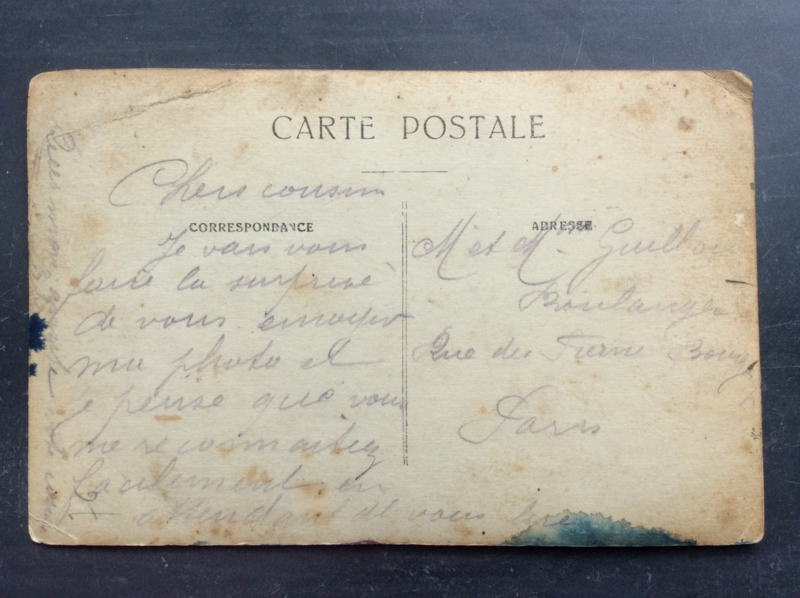 CARTE POSTALE
CORRESPONDANCE
Chers cousin
Je vais vous
faire la surprise
de vous envoyer
ma photo et
je pense que vous
me reconnaitez
facilement en
attendant de vous lire
ADRESSE
M et Mme
Boulanger
Rue des
Paris